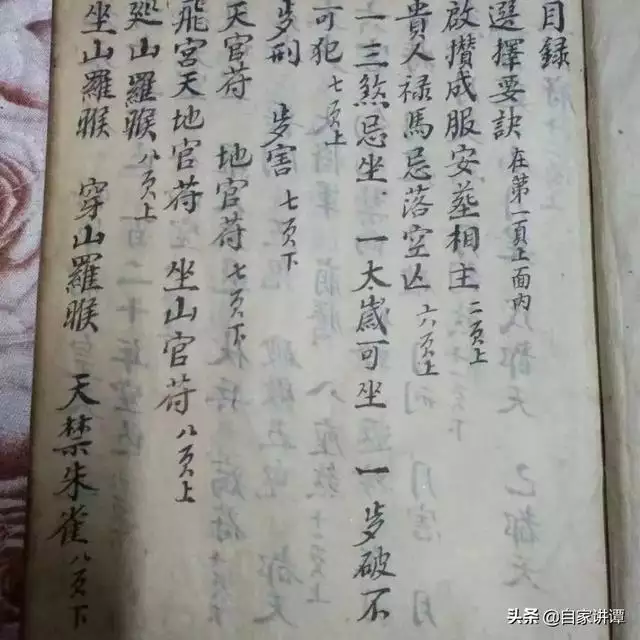 目録
選擇要訣 在第一頁上面内
啟攢成服安葬相主 二頁上
貴人禄馬忌落空亾 六頁上
一三煞忌坐、一太歲可坐 一歩破不
可犯 七頁上
歩刑 歩害 七頁下
天官符 地官荷 七頁下
飛宫天地官荷 坐山官荷 八頁上
廵山羅睺 八頁上
坐山羅睺 穿山羅睺 天禁朱雀 八頁下
头条 @自家讲谭